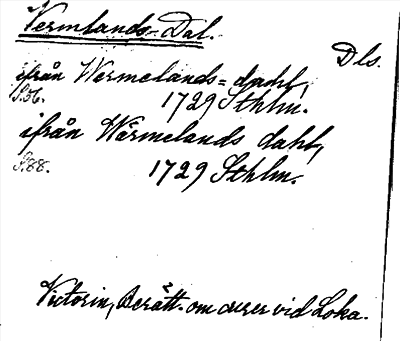 Vermlands-Dal.
Dls.
ifrån Wermelands=dahl,
S.56. 1729 Sthlm.
ifrån Wärmelands dahl,
S.88. 1729 Sthlm.
Victorin, Berätt. om curer vid Loka.